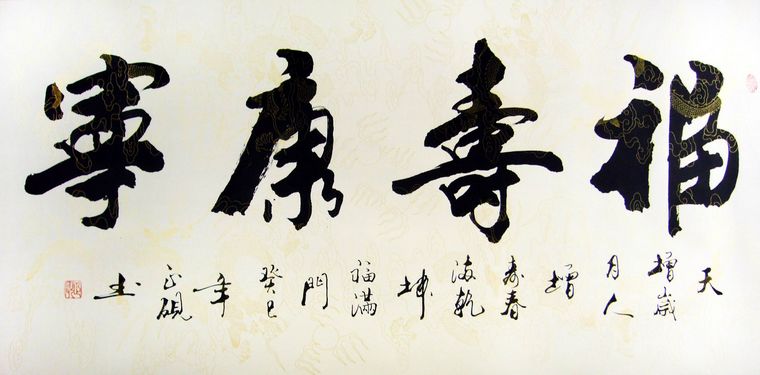 福壽康寧
天增歲月人增壽春滿乾坤福滿門癸巳年正硯書